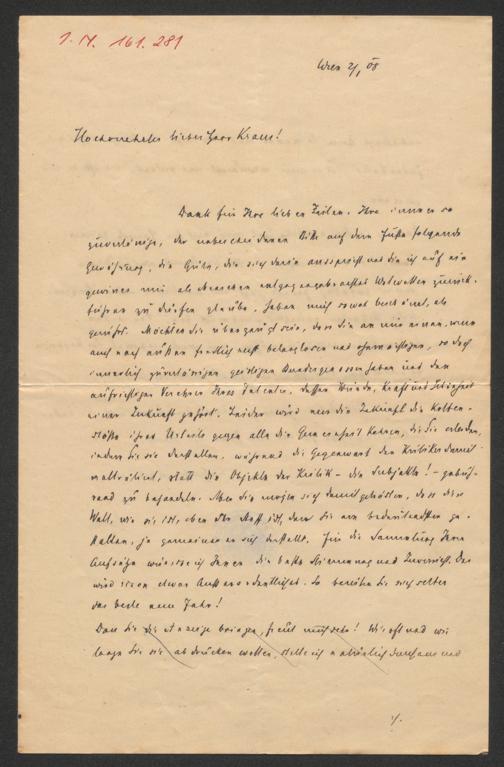 I. N. 161.281
Wien 2/I 08
Hochverehrter lieber Herr Kraus!
Dank für Ihre lieben Zeilen. Ihre immer so
zuverlässige, der unbescheidenen Bitte auf dem Fuße folgende
Gewährung, die Güte, die sich darin ausspricht und die ich auf ein
gewisses mir als Menschen entgegengebrachtes Wohlwollen zurück-
führen zu dürfen glaube, haben mich sowol beschämt, als
gerührt. Möchten Sie überzeugt sein, dass Sie an mir einen, wenn
auch nach außen freilich recht belanglosen und ohnmächtigen, so doch
innerlich zuverlässigen, geistigen Bundesgenossen haben und den
aufrichtigen Verehrer Ihres Talentes, dessen Würde, Kraft und Schönheit
einer Zukunft gehört. Leider wird nur die Zukunft die Kolben-
stöße Ihres Urteils gegen alle die Gemeinheit kehren, die Sie erleiden,
indem Sie sie darstellen, während die Gegenwart den Kritiker damit
maltraitirt, statt die Objekte der Kritik – die Subjekte! – gebüh-
rend zu behandeln. Aber Sie mögen sich damit getrösten, dass die
Welt, wie sie ist, eben der Stoff ist, dem Sie am bedeutendsten ge-
stalten, je gemeiner er sich darstellt. Für die Sammlung Ihrer
Aufsätze wünsche ich Ihnen die beste Stimmung und Zuversicht. Das
wird schon etwas Außerordentliches. So bereiten Sie sich selber
das beste neue Jahr!
Dass Sie die Anzeige bringen, freut mich sehr! Wie oft und wie
lange Sie sie abdrucken wollen, stelle ich natürlich durchaus